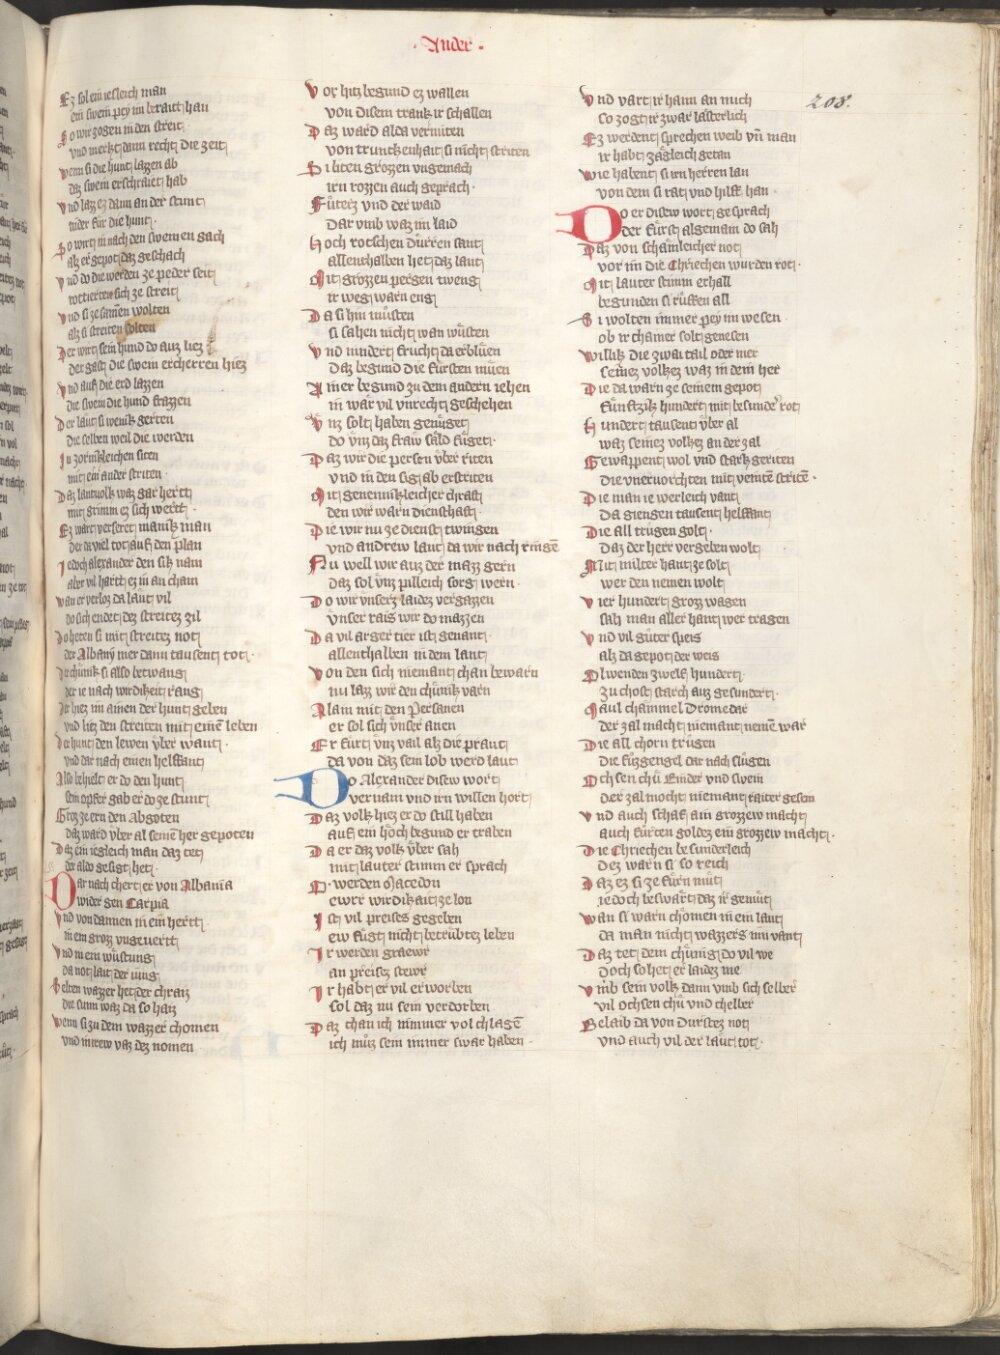 · Ander ·
208.
Ez sol ein iesleich man
ein swein pey im berait han
So wir zogen in den streit
vnd merkt dann recht die zeit
wenn si die hunt lazzen ab
daz swein erschraiet hab
Vnd lazz ez dann an der stunt
nider fur die hunt ·
Do wirt in nach den sweinen gach
alz er gepot daz geschach
Vnd do die werden ze peder seit
rottierten sich ze streit
Vnd si ze samen wolten
alz si streiten solten
Der wirt sein hund do auz liez
der gast die swein ercherren hiez
Vnd auf die erd lazzen
die swein die hund frazzen
Der laut si wenik gerten
die selben weil die werden
In zornikleichen siten
mit ein ander striten ·
Daz lantvolk waz gar hertt
mit grimm ez sich wertt ·
Ez wart verseret manik man
der da viel tot auf den plan
Iedoch alexander den sik nam
aber vil hartt ez in an cham
wan er verloz da laut vil
do sich endet dez streitez zil
Do heten si mit streitez not
der Albany mer dann tausent tot ·
Ir chunik si also betwang
der ie nach wirdikeit rang
Er hiez im ainen der hunt geben
vnd liez den streiten mit einem leben
Der hunt den lewen vber want ·
vnd dar nach einen helffant
Also behielt er do den hunt
sein opfer gab er do ze stunt
Groz ze ern den Abgoten
daz ward vber al seinem her gepoten
Daz ein iegleich man daz tet
der aldo gesigt het ·
Dar nach chert er von Albania
wider gen Carpia
Vnd von dannen in ein hertt
in ein groz vngevertt
Vnd in ein wustung
da not laut der iung
Selten wazzer het der chraiz
die sunn waz da so haiz
wenn si zu dem wazzer chomen
vnd in irew vaz dez nomen
Vor hitz begund ez wallen
von disem trank ir schallen
Daz ward alda vermiten
von trunkenhait si nicht striten
Si liten grozzen vngemach
irn rozzen auch geprach ·
Futerz vnd der waid
Dar vmb waz in laid
Hoch rotschen durren sant
allenthalben het daz lant
Mit grozzen pergen tweng
ir weg warn eng
Da si hin musten
si sahen nicht wan wusten
Vnd nindert frucht da erbluen
Daz begund die fursten muen
Ainer begund zu dem andern iehen
in war vil vnrecht geschehen
Vnz solt haben genuget
do vnz daz fraw sald fuget ·
Daz wir die persen vber riten
vnd in den sig ab erstriten
Mit genenikleicher chraft
den wir warn diensthaft ·
Die wir nu ze dienst twingen
vnd andrew laut da wir nach ringen
Nu well wir auz der mazz gern
daz sol vnz pilleich sorg wern ·
Do wir vnserz laidez vergazzen
vnser rais wir do mazzen
Da vil arger tier ist genant
allenthalben in dem lant
Von den sich niemant chan bewarn
nu lazz wir den chunik varn
Alain mit den Persanen
er sol sich vnser anen
Er furt vnz vail alz die praut
da von daz sein lob werd laut
Do Alexander disew wort
vernam vnd irn willen hort
Daz volk hiez er do still haben
auf ein hoch begund er traben
Da er daz volk vber sah
mit lauter stimm er sprach
O · werden Macedon
ewer wirdikait ze lon
Ist vil preises gegeben
ew fugt nicht betrubtez leben
Ir werden graewr
an preisez stewr
Ir habt er vil erworben
sol daz nu sein verdorben
Daz chan ich nimmer vol chlagen
ich muz sein immer swar haben ·
Vnd vart ir hann an mich
so zogt ir zwar lasterlich
Ez werdent sprechen weib vnd man
ir habt zagleich getan
Wie habent si irn herren lan
von dem si rat vnd hilff han ·
Do er disew wort gesprach
der furst algemain do sah
Daz von schamleicher not
vor im die Chriechen wurden rot ·
Mit lauter stimm erhall
begunden si ruffen all
Si wolten immer pey im wesen
ob ir chainer solt genesen
willik die zwai tail oder mer
seinez volkez waz in dem her
Die da warn ze seinem gepot
funftzik hundert mit besunder rot
Hundert tausent vber al
waz seinez volkez an der zal
Gewappent wol vnd stark geriten
die vnervorchten mit veinten striten ·
Die man ie werleich vant
Da giengen tausent helffant
Die all trugen golt ·
Daz der herr vergeben wolt
Mit milter hant ze solt
wer den nemen wolt
Vier hundert groz wagen
sah man aller hant wer tragen
Vnd vil guter speis
alz da gepot der weis
Olwenden zwelf hundert
zu chost starch auz gesundert ·
Maul chammel Dromedar
der zal macht niemant nemen war
Die all chorn trugen
die fuzgengel dar nach slugen
Ochsen chu Rinder vnd swein
der zal mocht niemant raiter gesein
Vnd auch schaf ain grozzew macht
auch furten goldez ein grozzew macht ·
Die Chriechen besunderleich
dez warn si so reich
Daz ez si ze furn mut
iedoch beswart daz ir gemut
wan si warn chomen in ein lant
da man nicht wazzers inn vant
Daz tet dem chunig do vil we
doch so het er laidez me
Vmb sein volk dann vmb sich selber
vil ochsen chu vnd chelber
Belaib da von durstez not
vnd auch vil der laut tot ·